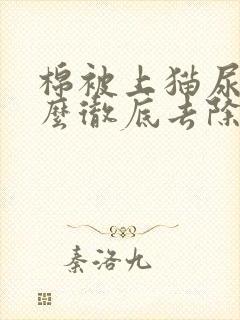 棉被上猫尿
麼徹底去除
秦洛九